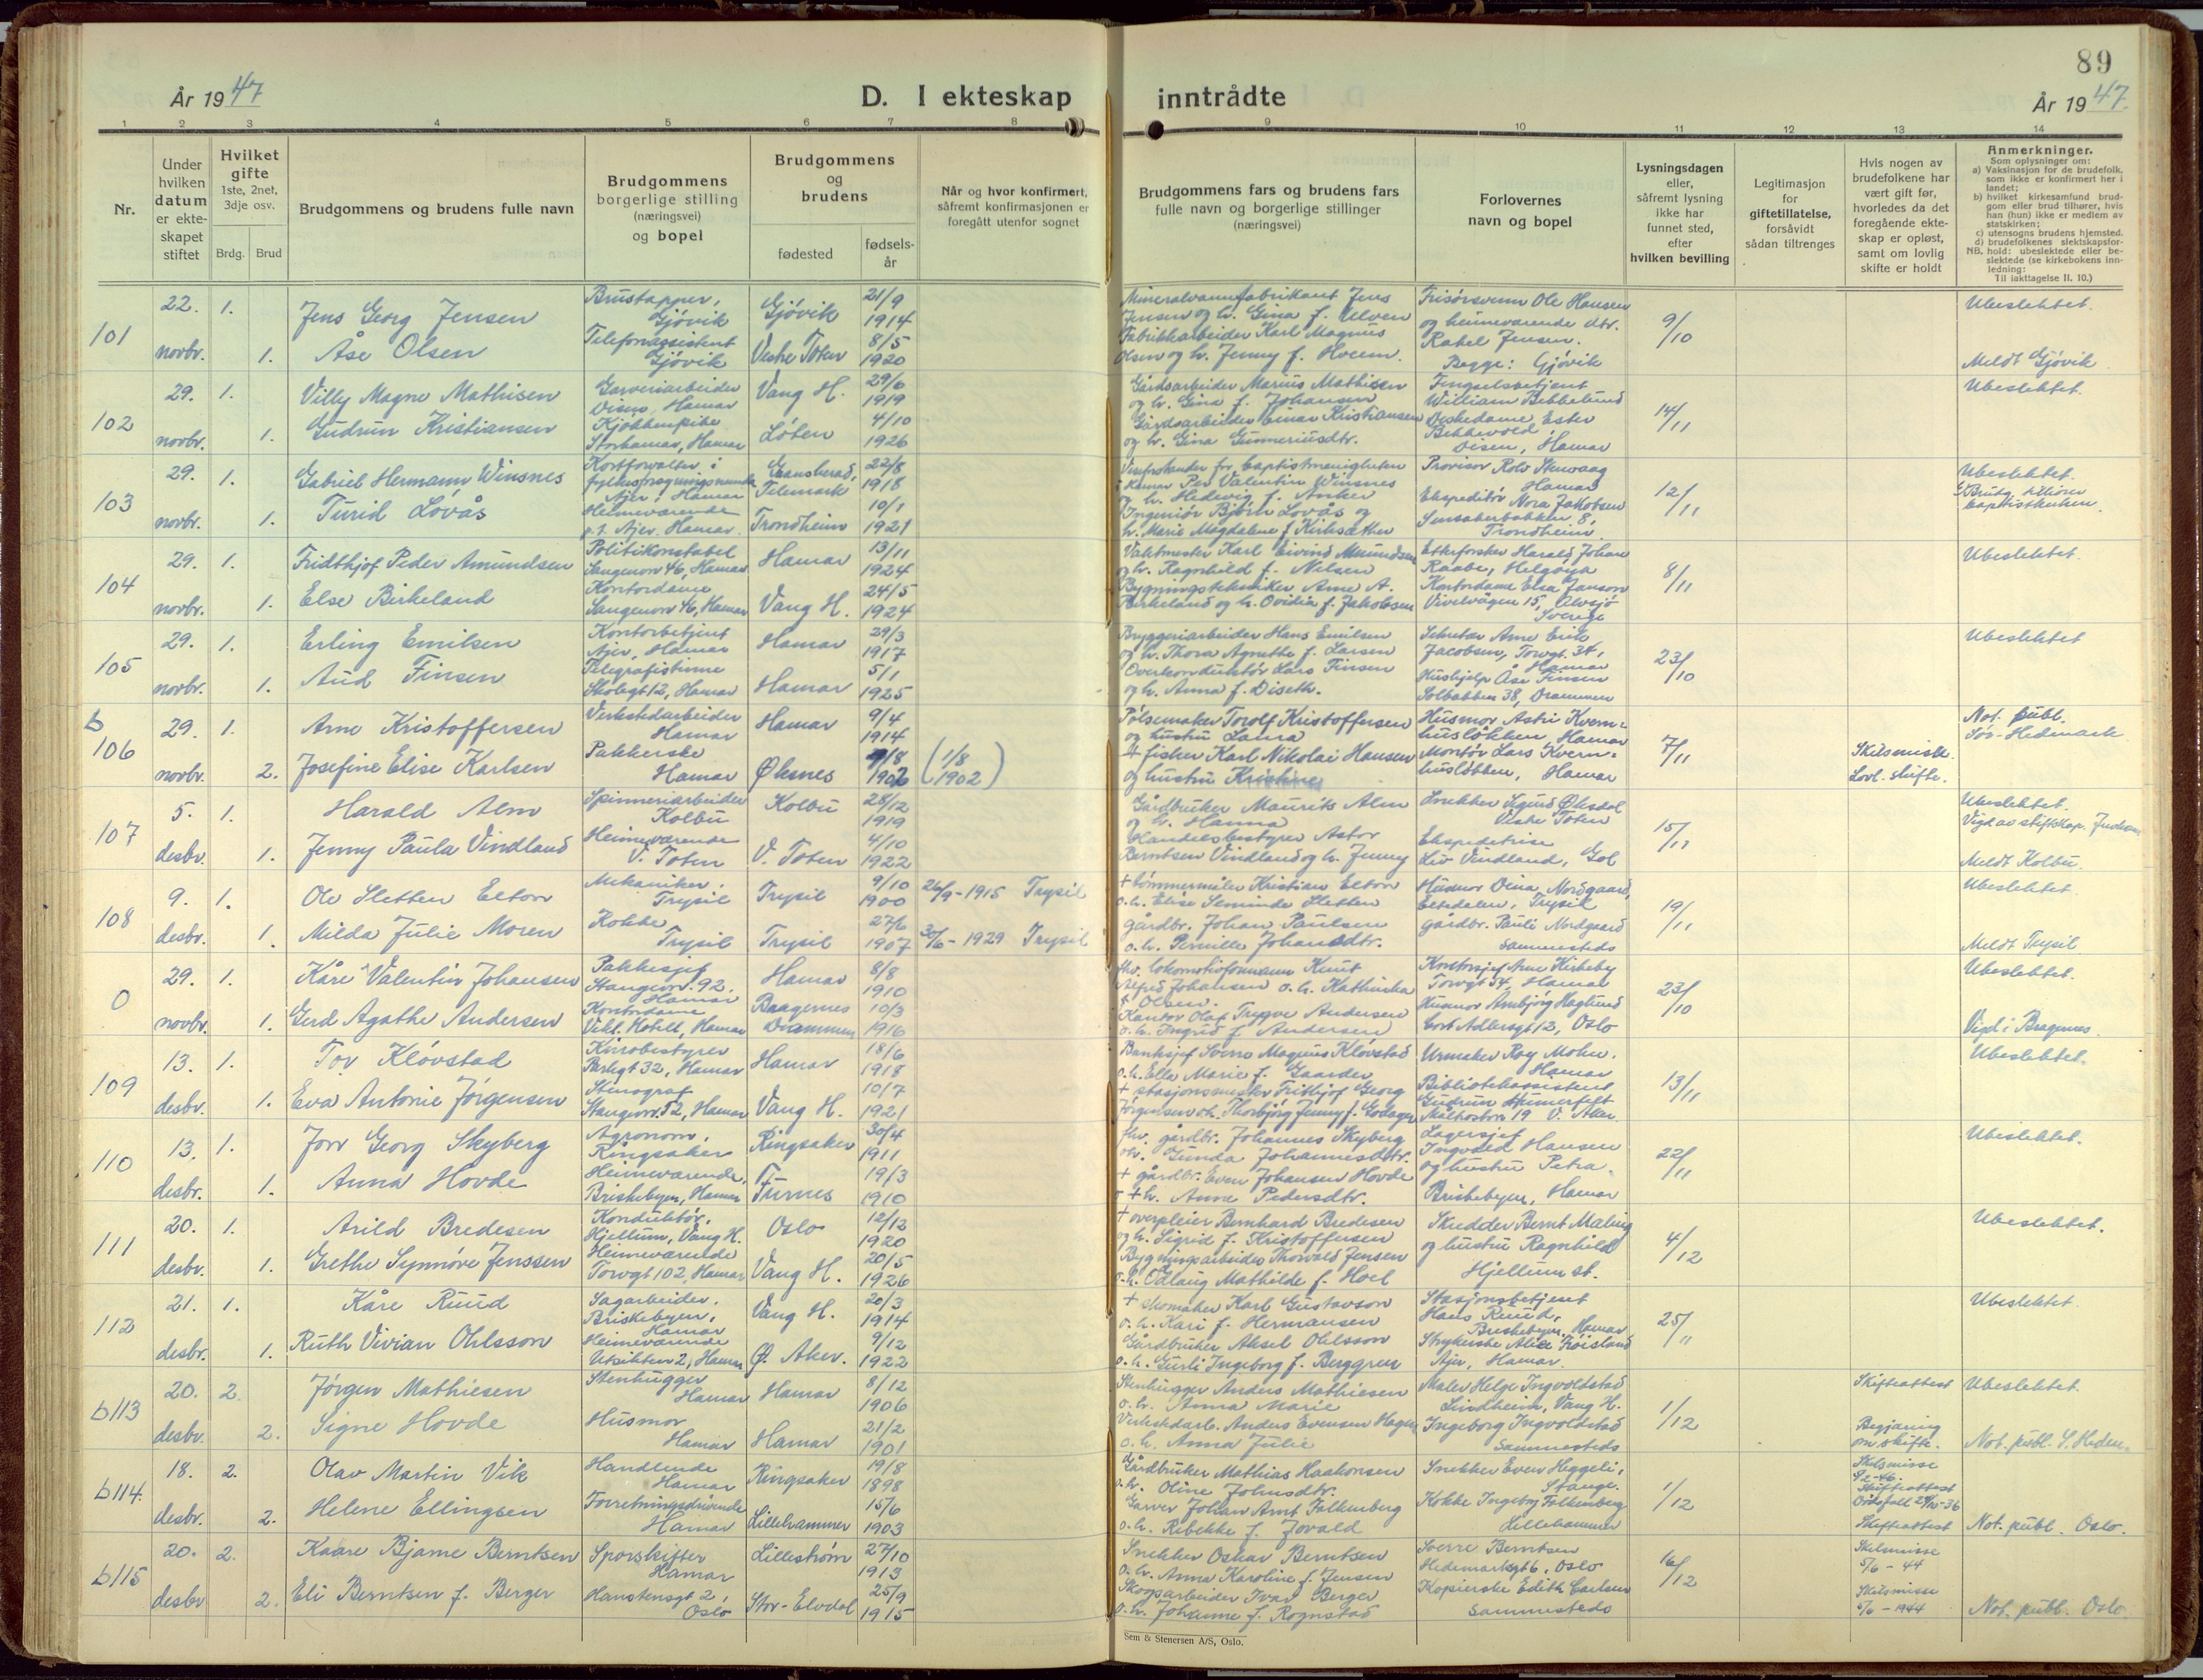 89
År 1947
D. I ekteskap inntrådte
År 1947.
1 2 3 4 5 6 7 8 9 10 11 12 13 14
Nr.
Under hvilken datum er ekteskapet stiftet
Hvilket gifte
1ste, 2net, 3dje osv.
Brdg. Brud
Brudgommens og brudens fulle navn
Brudgommens borgerlige stilling (næringsvei) og bopel
Brudgommens og brudens
fødested
fødsels-år
Når og hvor konfirmert, såfremt konfirmasjonen er foregått utenfor sognet
Brudgommens fars og brudens fars fulle navn og borgerlige stillinger (næringsvei)
Forlovernes navn og bopel
Lysningsdagen eller, såfremt lysning ikke har funnet sted, efter hvilken bevilling
Legitimasjon for giftetillatelse, forsåvidt sådan tiltrenges
Hvis nogen av brudefolkene har vært gift før, hvorledes da det foregående ekteskap er opløst, samt om lovlig skifte er holdt
Anmerkninger.
Som oplysninger om:
a) Vaksinasjon for de brudefolk, som ikke er konfirmert her i landet;
b) hvilket kirkesamfund brudgom eller brud tilhører, hvis han (hun) ikke er medlem av statskirken;
c) utensogns brudens hjemsted.
d) brudefolkenes slektskapsforhold: ubeslektede eller beslektede (se kirkebokens innledning:
NB.
Til iakttagelse II. 10.)
101
22. novbr. 1. 1.
Jens Georg Jensen
Åse Olsen
Brustapper, Gjøvik
Telefonassistent Gjøvik
Gjøvik 21/9 1914
Vestre Toten 8/5 1920
Mineralvannfabrikant Jens
Jensen og h. Gina f. Ulven
Fabrikkarbeider Karl Magnus
Olsen og h. Jenny f. Hveem.
Frisørsvenn Ole Hansen
og heimeværende dtr.
Rakel Jensen.
Begge: Gjøvik
9/10
Ubeslektet.
Meldt Gjøvik
102
29. novbr. 1. 1.
Villy Magne Mathisen
Gudrun Kristiansen
Garveriarbeider
Disen, Hamar
Kjøkkenpike
Storhamar, Hamar
Vang H. 29/6 1919
Løten 4/10 1926
Gårdsarbeider Marius Mathisen
og h. Gina f. Johansen
Gårdsarbeider Einar Kristiansen
og h. Gina Gunneriusdtr.
Fengselsbetjent
William Bekkelund
Ester
Disen, Hamar
14/11
Ubeslektet.
103
29. novbr. 1. 1.
Gabriel Hermann Winsnes
Turid Løvås
Kortforvalter i
Ajer, Hamar
Heimeværende
p.t. Ajer, Hamar.
Gransherad, Telemark 22/8 1918
Trondheim 10/1 1921
i Hamar Per Valentin Winsnes
og h. Hedevig f. Anker
Ingeniør Bjørn Løvås og
h. Marie Magdalene f. Kirksæther
Provisor Rolv Stenvaag
Hamar
Ekspeditør Nora Jakobsen
8, Trondheim.
12/11
Ubeslektet.
Brudg. tilhører
baptistkirken.
104
29. novbr. 1. 1.
Fridthjof Peder Amundsen
Else Birkeland
Politikonstabel
Vangsvn 46, Hamar
Kontordame
Vangsvn 46, Hamar
Hamar 13/11 1924
Vang H. 24/5 1924
Vaktmester Karl Eivind Amundsen
og h. Ragnhild f. Nilsen
Bygningstekniker Arne A.
Birkeland og h. Ovidia f. Jakobsen
Etterforsker Harald Johan
Raabe, Helgøya
Kontordame Elsa Janson
15, Älvsjö
Sverige
8/11
Ubeslektet.
105
29. novbr. 1. 1.
Erling Emilsen
Aud Finsen
Kontorbetjent
Ajer, Hamar
Telegrafistinne
Skolegt 12, Hamar
Hamar 29/3 1917
Hamar 5/1 1925
Bryggeriarbeider Hans Emilsen
og h. Thora Agnethe f. Larsen
Overkonduktør Lars Finsen
og h. Anna f. Diseth.
Sekretær Arne Erik
Jacobsen, Torvgt. 34,
Hamar
Hushjelp Åse Finsen
Solbakken 38, Drammen
23/10
Ubeslektet
b 106
29. novbr. 1. 2.
Arne Kristoffersen
Josefine Elise Karlsen
Verkstedarbeider
Hamar
Pakkerske
Hamar
Hamar 9/4 1914
Øksnes 1/8 1902
(1/8 1902)
Pølsemaker Torolf Kristoffersen
og hustru Laura
+ fisker Karl Nikolai Hansen
og hustru Kristine
Husmor Astri Kvern-
husløkken, Hamar
Montør Lars Kvern-
husløkken, Hamar
7/11
Skilsmisse.
Lovl. skifte.
Not. publ.
Sør-Hedmark
107
5. desbr. 1. 1.
Harald Alm
Jenny Paula Vindland
Spinneriarbeider
Kolbu
Heimeværende
V. Toten
Kolbu 28/12 1919
V. Toten 4/10 1922
Gårdbruker Maurits Alm
og h. Hanna
Handelsbestyrer Astor
Berntsen Vindland og h. Jenny
Snekker Sigurd Øksdal
Østre Toten
Ekspeditrise
Liv Vindland, Gol
15/11
Ubeslektet.
Vigd av stiftskap.
Meldt Kolbu.
108
9. desbr. 1. 1.
Ole Sletten Elton
Milda Julie Moren
Mekaniker,
Trysil
Kokke,
Trysil
Trysil 9/10 1900
Trysil 27/6 1907
26/9-1915 Trysil
30/6-1929 Trysil
+ tømmermåler Kristian Elton
o.h. Elise Seminde Sletten
gårdbr. Johan Paulsen
o.h. Pernille Johansdtr.
Husmor Dina Nordgaard,
Eltdalen, Trysil
gårdbr. Pauli Nordgaard
sammesteds
19/11
Ubeslektet.
Meldt Trysil
0
29. novbr. 1. 1.
Kåre Valentin Johansen
Gerd Agathe Andersen
Pakksjef
Stangevn. 92,
Hamar
Kontordame
Vikt. Hotell, Hamar
Hamar 8/8 1910
Bragernes Drammen 10/3 1916
fhv. lokomotivformann Knut
Alfred Johansen o.h. Kathinka
f. Olsen.
Kantor Olaf Trygve Andersen
o.h. Ingrid f. Andersen
Kontorsjef Arne Kirkeby
Torvgt 54, Hamar
Husmor Annbjørg Haglund
Cort Adlersgt 12, Oslo
23/10
Ubeslektet.
Vigd i Bragernes.
109
13. desbr. 1. 1.
Tor Kløvstad
Eva Antonie Jørgensen
Kinobestyrer
Parkgt 32, Hamar
Stenograf
Stangevn. 52, Hamar
Hamar 18/6 1918
Vang H. 10/7 1921
Banksjef Sverre Magnus Kløvstad
o.h. Ella Marie f. Gaarder
+ stasjonsmester Frithjof Georg
Jørgensen o.h. Thorbjørg Jenny f. Godager
Urmaker Roy Mohn.
Hamar
Bibliotekassistent
Gudrun Humerfelt
19 V. Aker.
13/11
Ubeslektet.
110
13. desbr. 1. 1.
Jon Georg Skyberg
Anna Hovde
Agronom,
Ringsaker
Heimeværende,
Briskebyen, Hamar
Ringsaker 30/4 1911
Furnes 19/3 1910
fhv. gårdbr. Johannes Skyberg
o.h. Gunda Johannesdtr.
+ gårdbr. Even Johansen Hovde
o + h. Anne Pedersdtr.
Lagersjef
Ingvald Hansen
og hustru Petra.
Briskebyen, Hamar
22/11
Ubeslektet.
111
20. desbr. 1. 1.
Arild Bredesen
Grethe Synnøve Jenssen
Konduktør,
Hjellum, Vang H.
Heimeværende
Torvgt 102, Hamar
Oslo 12/12 1920
Vang H. 20/5 1926
+ overpleier Bernhard Bredesen
og h. Sigrid f. Kristoffersen
Bygningsarbeider Thorvald Jensen
o.h. Odlaug Mathilde f. Hoel
Skredder Bernt Maling
og hustru Ragnhild
Hjellum st.
4/12
Ubeslektet.
112
21. desbr. 1. 1.
Kåre Ruud
Ruth Vivian Ohlsson
Sagarbeider,
Briskebyen,
Hamar
Heimeværende
Utsikten 2, Hamar
Vang H. 20/3 1914
Ø. Aker. 9/12 1922
+ skomaker Karl Gustavson
o.h. Kari f. Hermansen
Gårdbruker Aksel Ohlsson
o.h. Gurli Ingeborg f. Berggren
Stasjonsbetjent
Hans Ruud,
Briskebyen, Hamar
Strykerske Alice Frøisland
Ajer, Hamar.
25/11
Ubeslektet.
b113
20. desbr. 2. 2.
Jørgen Mathiesen
Signe Hovde
Stenhugger
Hamar
Husmor
Hamar
Hamar 8/12 1906
Hamar 21/2 1901
Stenhugger Anders Mathiesen
o.h. Anna Marie
Verkstedarb. Anders Evensen Hagen
o.h. Anna Julie
Maler Helge Ingvoldstad
Lindheim, Vang H.
Ingeborg Ingvoldstad
sammesteds
1/12
Skifteattest
Begjæring
om skifte.
Ubeslektet.
Not. publ. S. Hedm.
b114.
18. desbr. 2. 2.
Olav Martin Vik
Helene Ellingsen
Handlende
Hamar
Forretningsdrivende
Hamar
Ringsaker 19/8 1898
Lillehammer 15/6 1903
Gårdbruker Mathias Haakonsen
o.h. Oline Johnsdtr.
Garver Johan Arnt Falkenberg
o.h. Rebekke f. Jovald
Snekker Even Heggeli,
Stange.
Kokke Ingeborg Falkenberg
Lillehammer
1/12
Skilsmisse
Skifteattest
Skifteattest
Not. publ. Oslo.
b115
20. desbr 2. 2.
Kaare Bjarne Berntsen
Eli Berntsen f. Berger
Sporskifter
Hamar
Hanstensgt 2,
Oslo
Lillestrøm 27/10 1913
Stor-Elvdal 25/9 1915
Snekker Oskar Berntsen
o.h. Anna Karoline f. Jensen
Skogsarbeider Ivar Berger
o.h. Johanne f. Rognstad
Sverre Berntsen
Hedemarksgt 6, Oslo
Kopierske Edith Carlsen
sammesteds
16/12
Skilsmisse
5/6 - 44
Skilsmisse
5/6 - 1944
Not. publ. Oslo.
Sem & Stenersen A/S, Oslo.